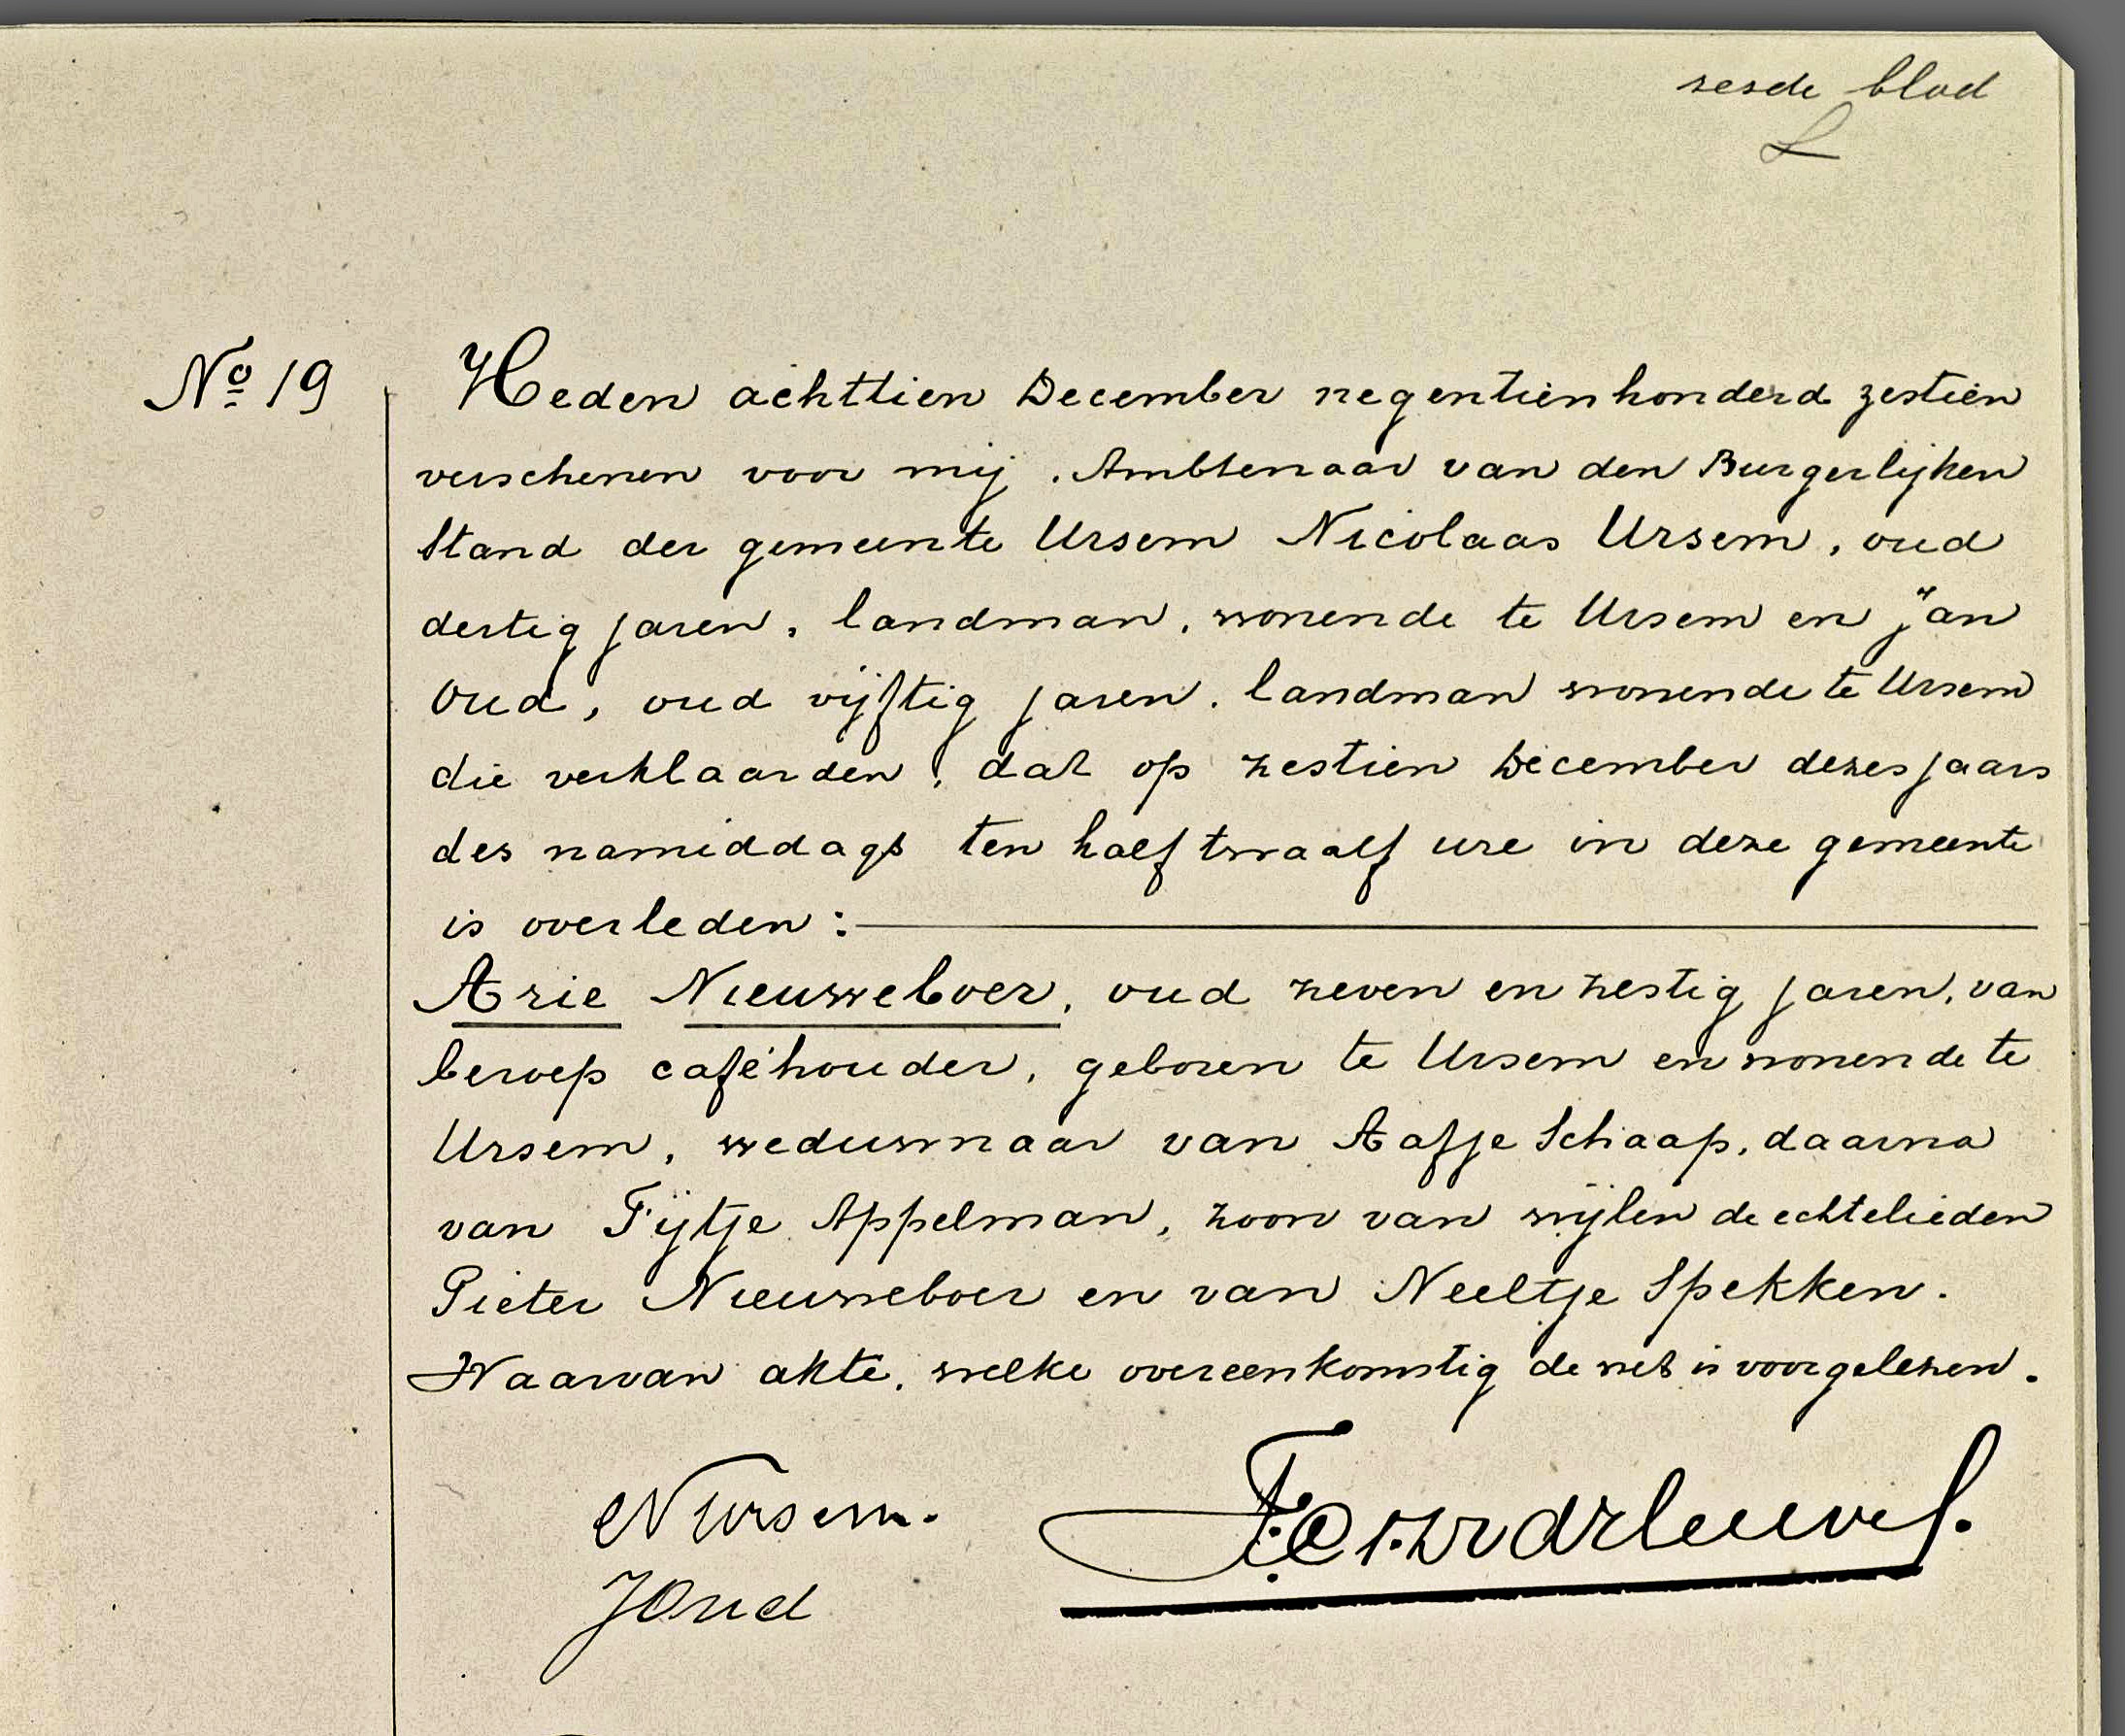 zesde blad
No 19
Heden achttien December negentienhonderd zestien
verschenen voor mij, Ambtenaar van den Burgerlijken
Stand der gemeente Ursem Nicolaas Ursem, oud
dertig jaren, landman, wonende te Ursem en Jan
Oud, oud vijftig jaren, landman wonende te Ursem
die verklaarden, dat op zestien December dezes jaars
des namiddags ten half twaalf ure in deze gemeente
is overleden:
Arie Nieuweboer, oud zeven en zestig jaren, van
beroep caféhouder, geboren te Ursem en wonende te
Ursem, weduwnaar van Aafje Schaap, daarna
van Tijtje Appelman, zoon van wijlen de echtelieden
Pieter Nieuweboer en van Neeltje Spekken.
Waarvan akte, welke overeenkomstig de wet is voorgelezen.
N Ursem.
J Oud